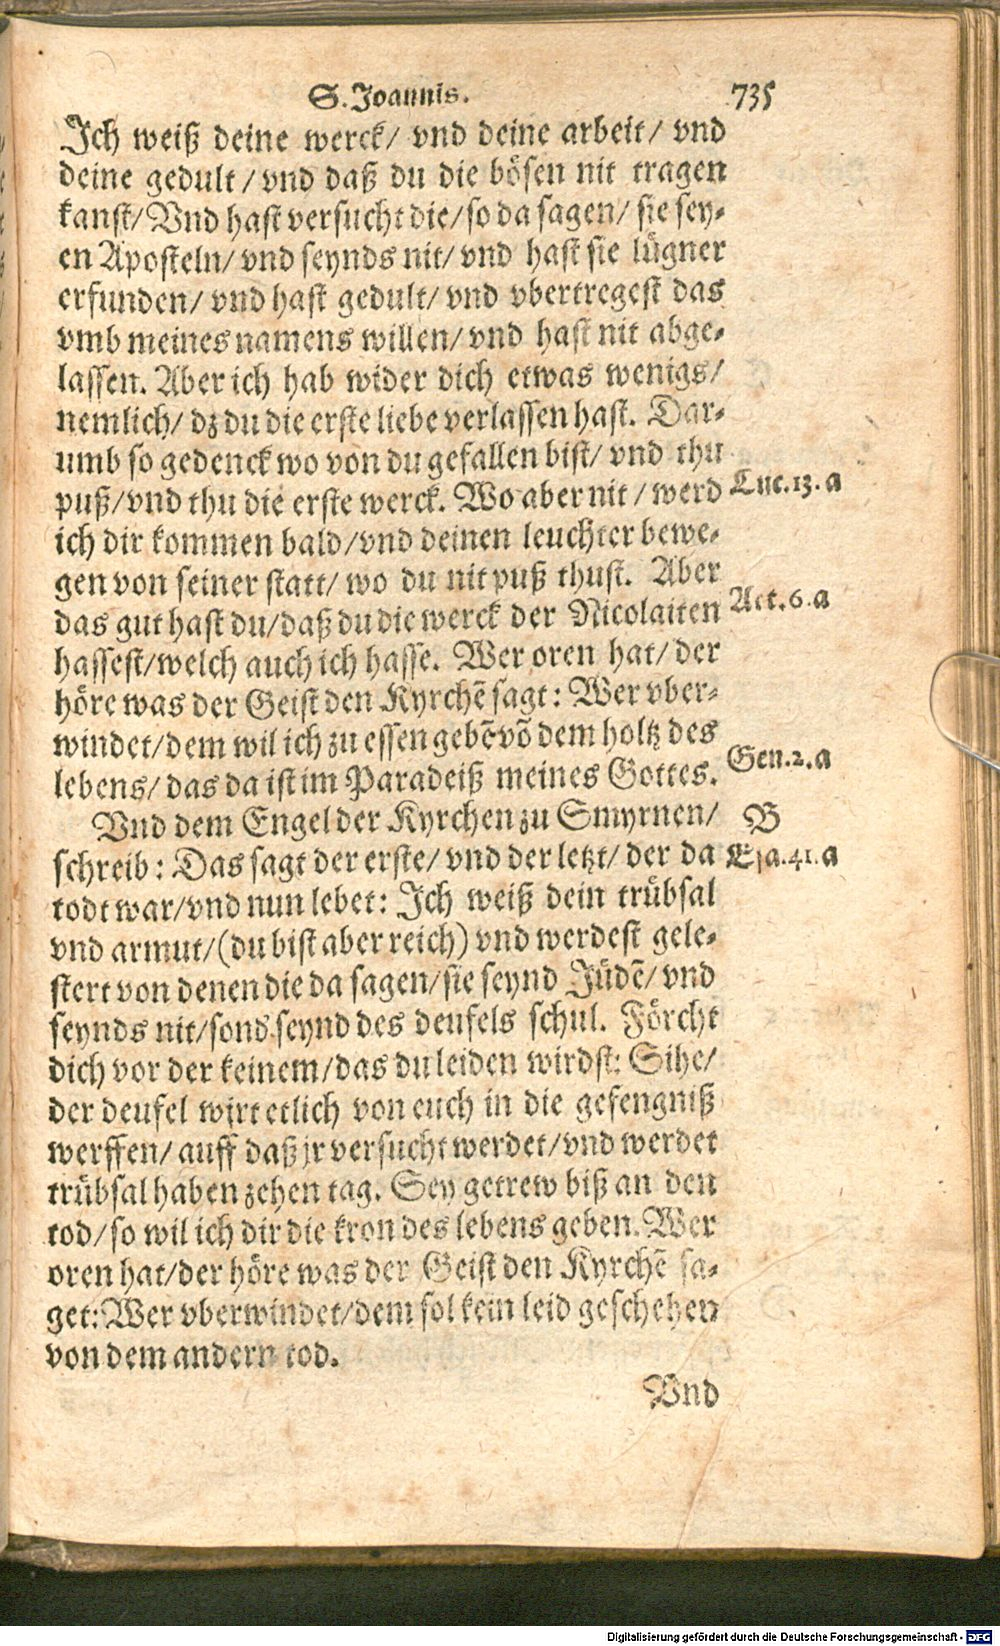 S. Joannis. 735
Jch weiß deine werck/ vnd deine arbeit/ vnd
deine gedult/ vnd daß du die bösen nit tragen
kanst/ Vnd hast versucht die/ so da sagen/ sie sey⸗
en Aposteln/ vnd seynds nit/ vnd hast sie lügner
erfunden/ vnd hast gedult/ vnd vbertregest das
vmb meines namens willen/ vnd hast nit abge⸗
lassen. Aber ich hab wider dich etwas wenigs/
nemlich/ dz du die erste liebe verlassen hast. Dar⸗
umb so gedenck wo von du gefallen bist/ vnd thu
puß/ vnd thu die erste werck. Wo aber nit/ werd Luc.13.a
ich dir kommen bald/ vnd deinen leuchter bewe⸗
gen von seiner statt/ wo du nit puß thust. Aber
das gut hast du/ daß du die werck der Nicolaiten Act.6.a
hassest/ welch auch ich hasse. Wer oren hat/ der
höre was der Geist den Kyrchẽ sagt: Wer vber⸗
windet/ dem wil ich zu essen gebẽ võ dem holtz des
lebens/ das da ist im Paradeiß meines Gottes. Gen.2.a
Vnd dem Engel der Kyrchen zu Smyrnen/ B
schreib: Das sagt der erste/ vnd der letzt/ der da Esa.41.a
todt war/ vnd nun lebet: Jch weiß dein trübsal
vnd armut/ (du bist aber reich) vnd werdest gele⸗
stert von denen die da sagen/ sie seynd Jüdẽ/ vnd
seynds nit/ sond. seynd des deufels schul. Förcht
dich vor der keinem/ das du leiden wirdst: Sihe/
der deufel wirt etlich von euch in die gefengniß
werffen/ auff daß jr versucht werdet/ vnd werdet
trübsal haben zehen tag. Sey getrew biß an den
tod/ so wil ich dir die kron des lebens geben. Wer
oren hat/ der höre was der Geist den Kyrchẽ sa⸗
get: Wer vberwindet/ dem sol kein leid geschehen
von dem andern tod.
Vnd
Digitalisierung gefördert durch die Deutsche Forschungsgemeinschaft - DFG